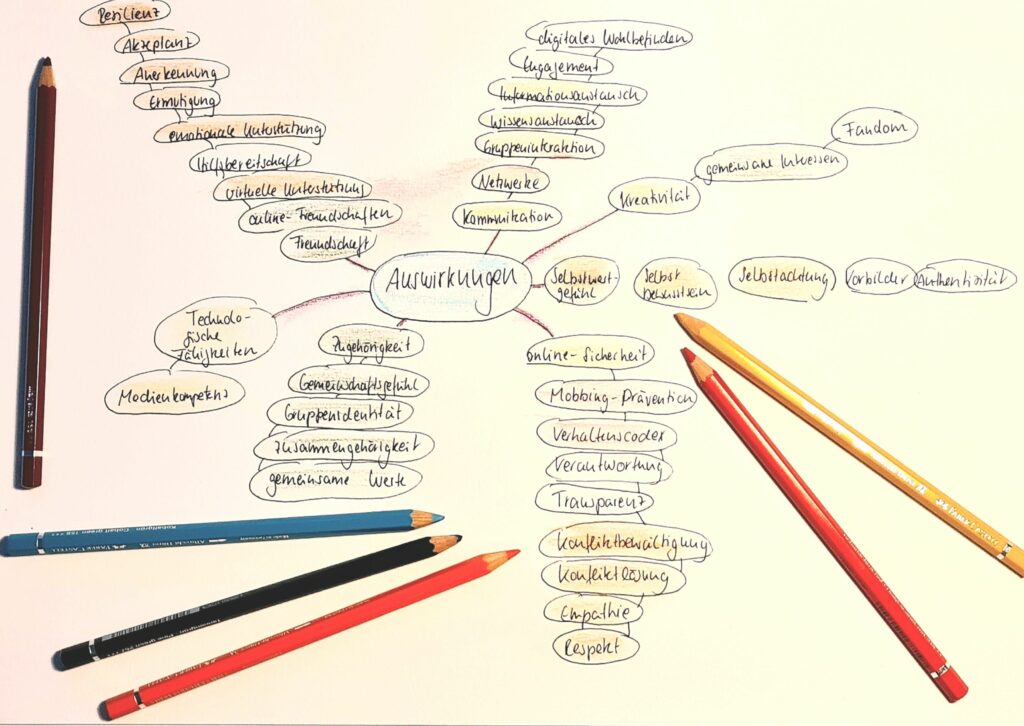 Resilienz
Akzeptanz
Anerkennung
Ermutigung
emotionale Unterstützung
Hilfsbereitschaft
virtuelle Unterstützung
online-Freundschaften
Freundschaft
digitales Wohlbefinden
Engagement
Informationsaustausch
Wissensaustausch
Gruppeninteraktion
Netzwerke
Kommunikation
Fandom
gemeinsame Interessen
Kreativität
Auswirkungen
Selbstwert-
gefühl
Selbst
bewusstsein
Selbstachtung
Vorbilder
Authentizität
Technolo-
gische
Fähigkeiten
Medienkompetenz
Zugehörigkeit
Gemeinschaftsgefühl
Gruppenidentität
Zusammengehörigkeit
gemeinsame Werte
online-Sicherheit
Mobbing-Prävention
Verhaltenscodex
Verantwortung
Transparenz
Konfliktbewältigung
Konfliktlösung
Empathie
Respekt